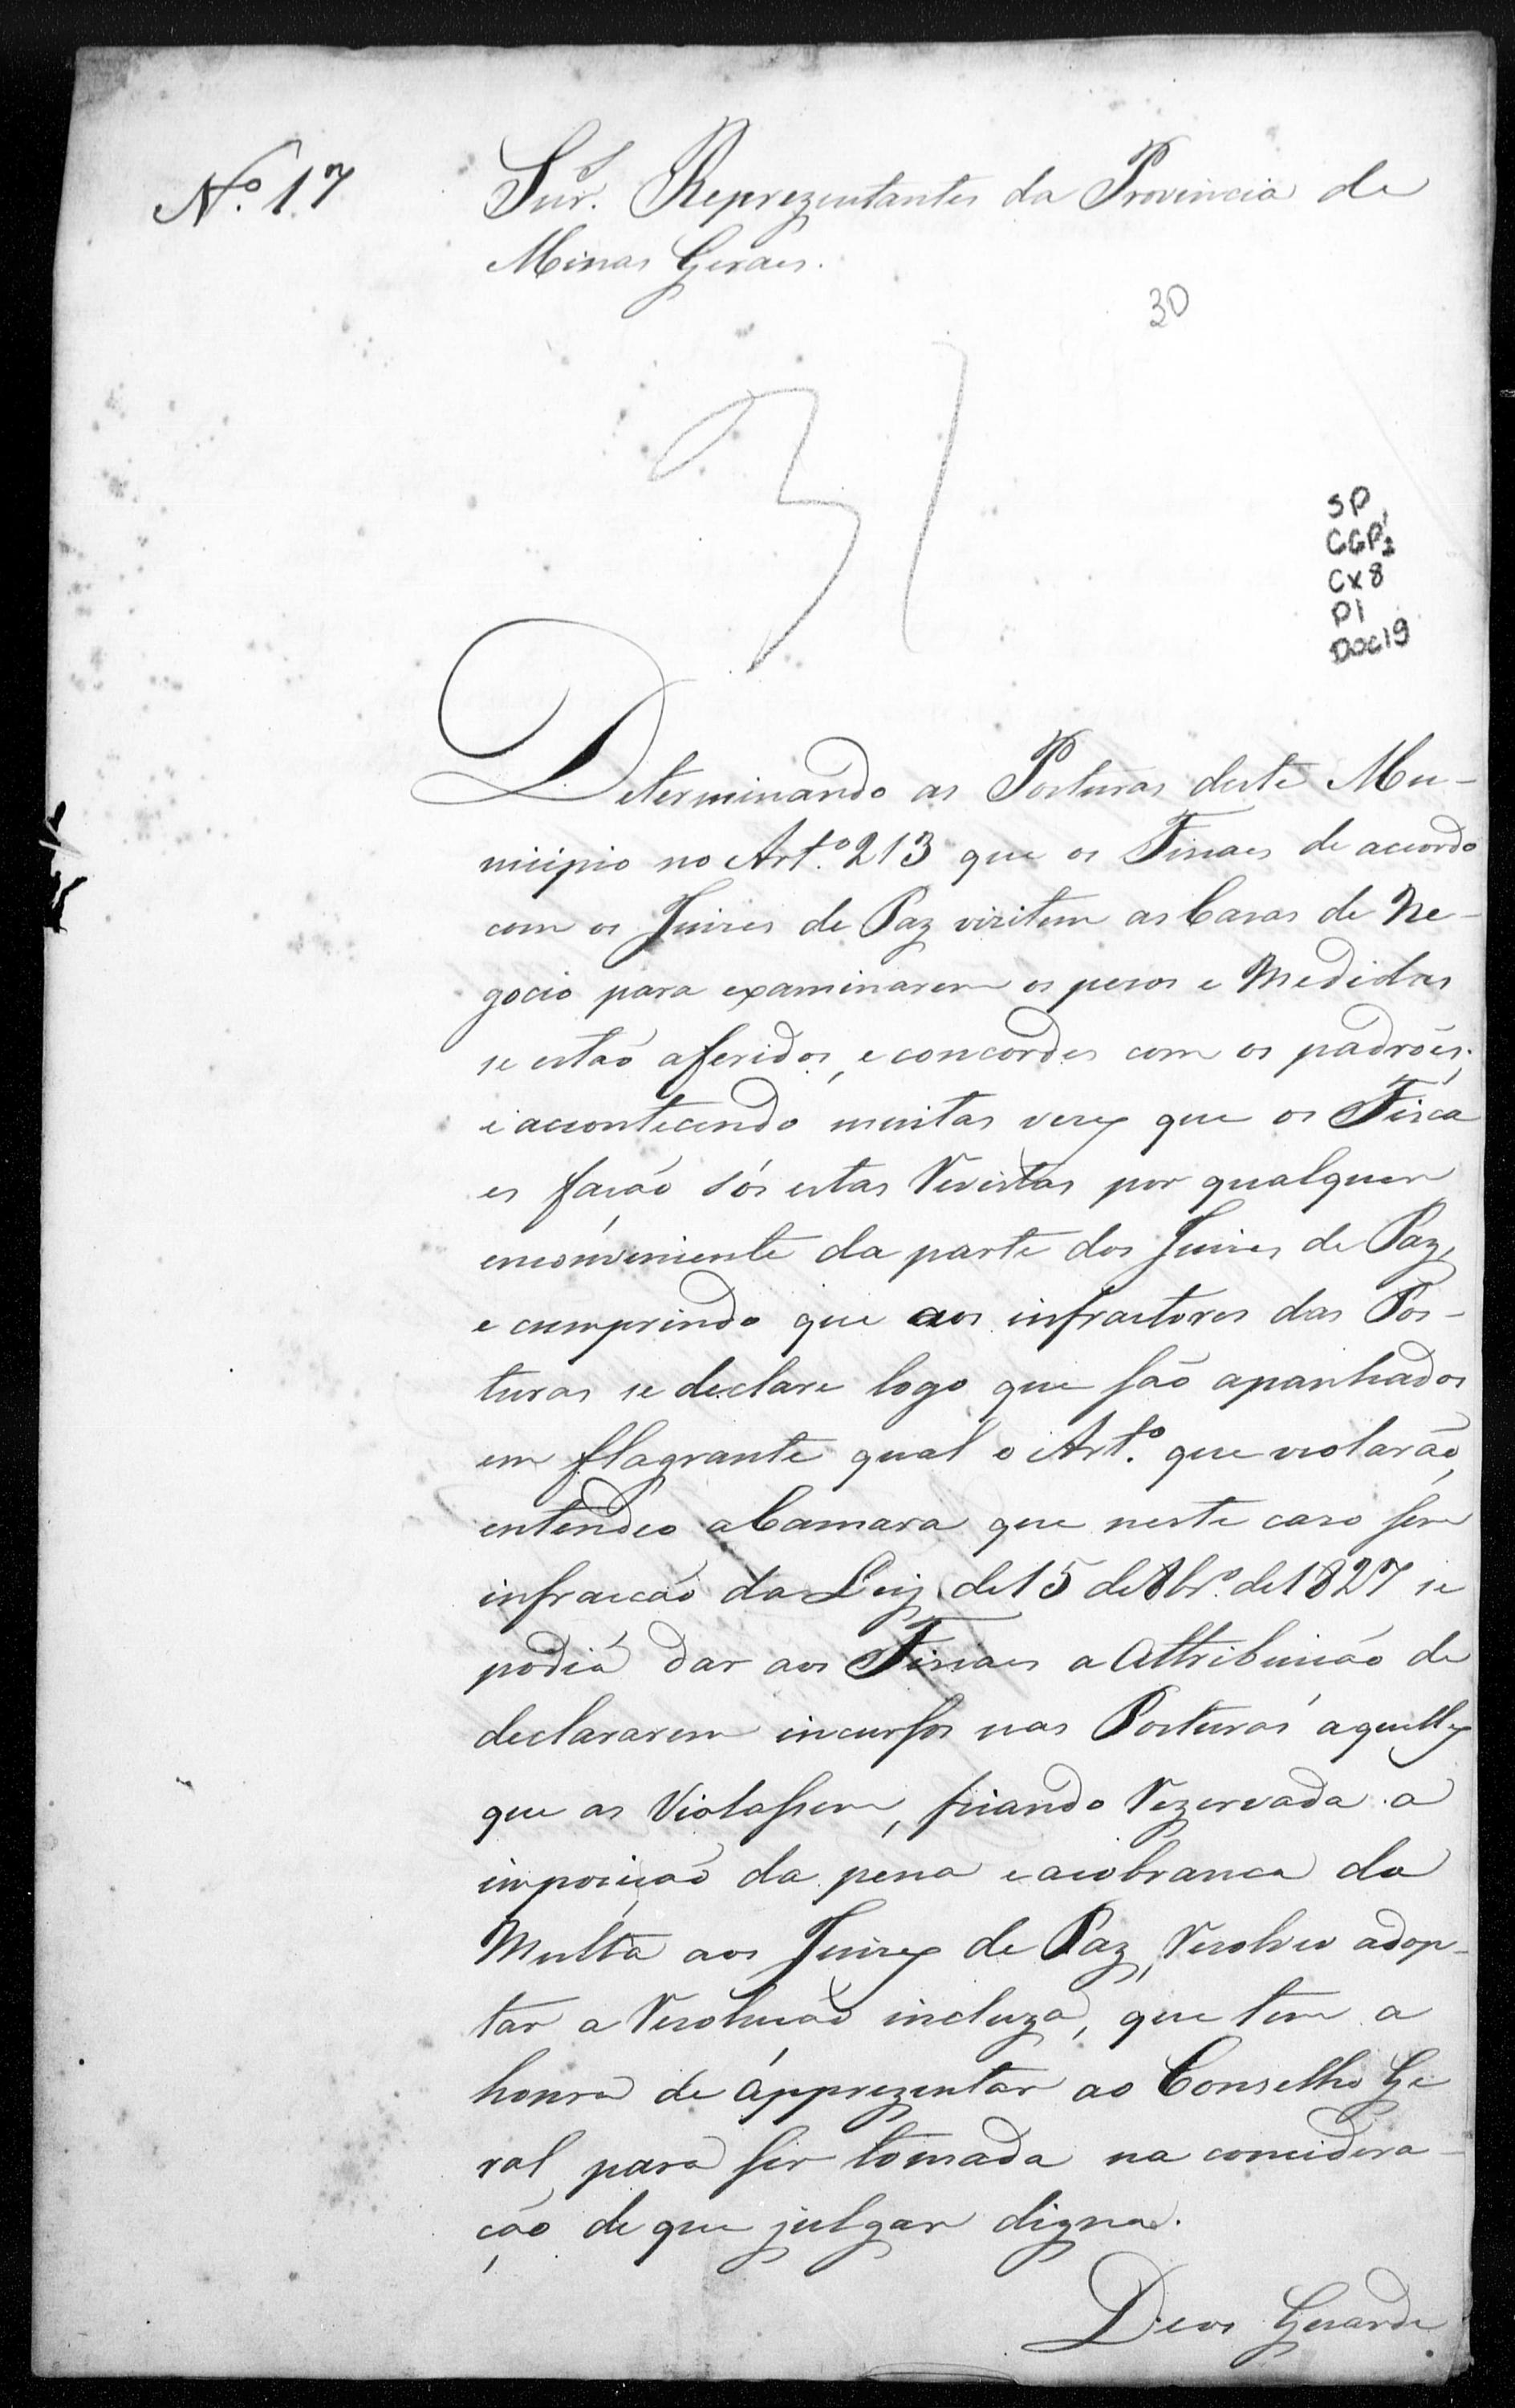 Nº. 17
Snr.s Reprezentantes da Provincia de
Minas Geraes.
30
31
SP
CGP1
Cx 8
P1
Doc 19
Determinando as Posturas deste Mu-
nicipio no Art.º 213 que os Fiscaes de acordo
com os Juises de Paz visitem as Casas de Ne-
gocio para examinarem os pesos e Medidas
se estaõ aferidos, e concordes com os padrões;
e acontecendo muitas veses que os Fisca
es façaõ sós estas Visistas por qualquer
enconveniente da parte dos Juises de Paz,
e cumprindo que aos infractores das Pos-
turas se declare logo que saõ apanhados
em flagrante qual o Art.º que violaraõ,
entendeo a Camara que neste caso sem
infracçaõ da Ley de 15 de 8br.º de 1827 se
podiá dar aos Fiscaes a Attribuiçaõ de
declararem incursos nas Posturas aquelles
que as Violassem, ficando rezervada a
imposiçaõ da pena e a cobranca da
Multa aos Juises de Paz, resolveo adop-
tar a resoluçaõ incluza, que tem a
honra de apprezentar ao Conselho Ge
ral para ser tomada na considera-
çaõ de que julgar digna.
Deos Guarde